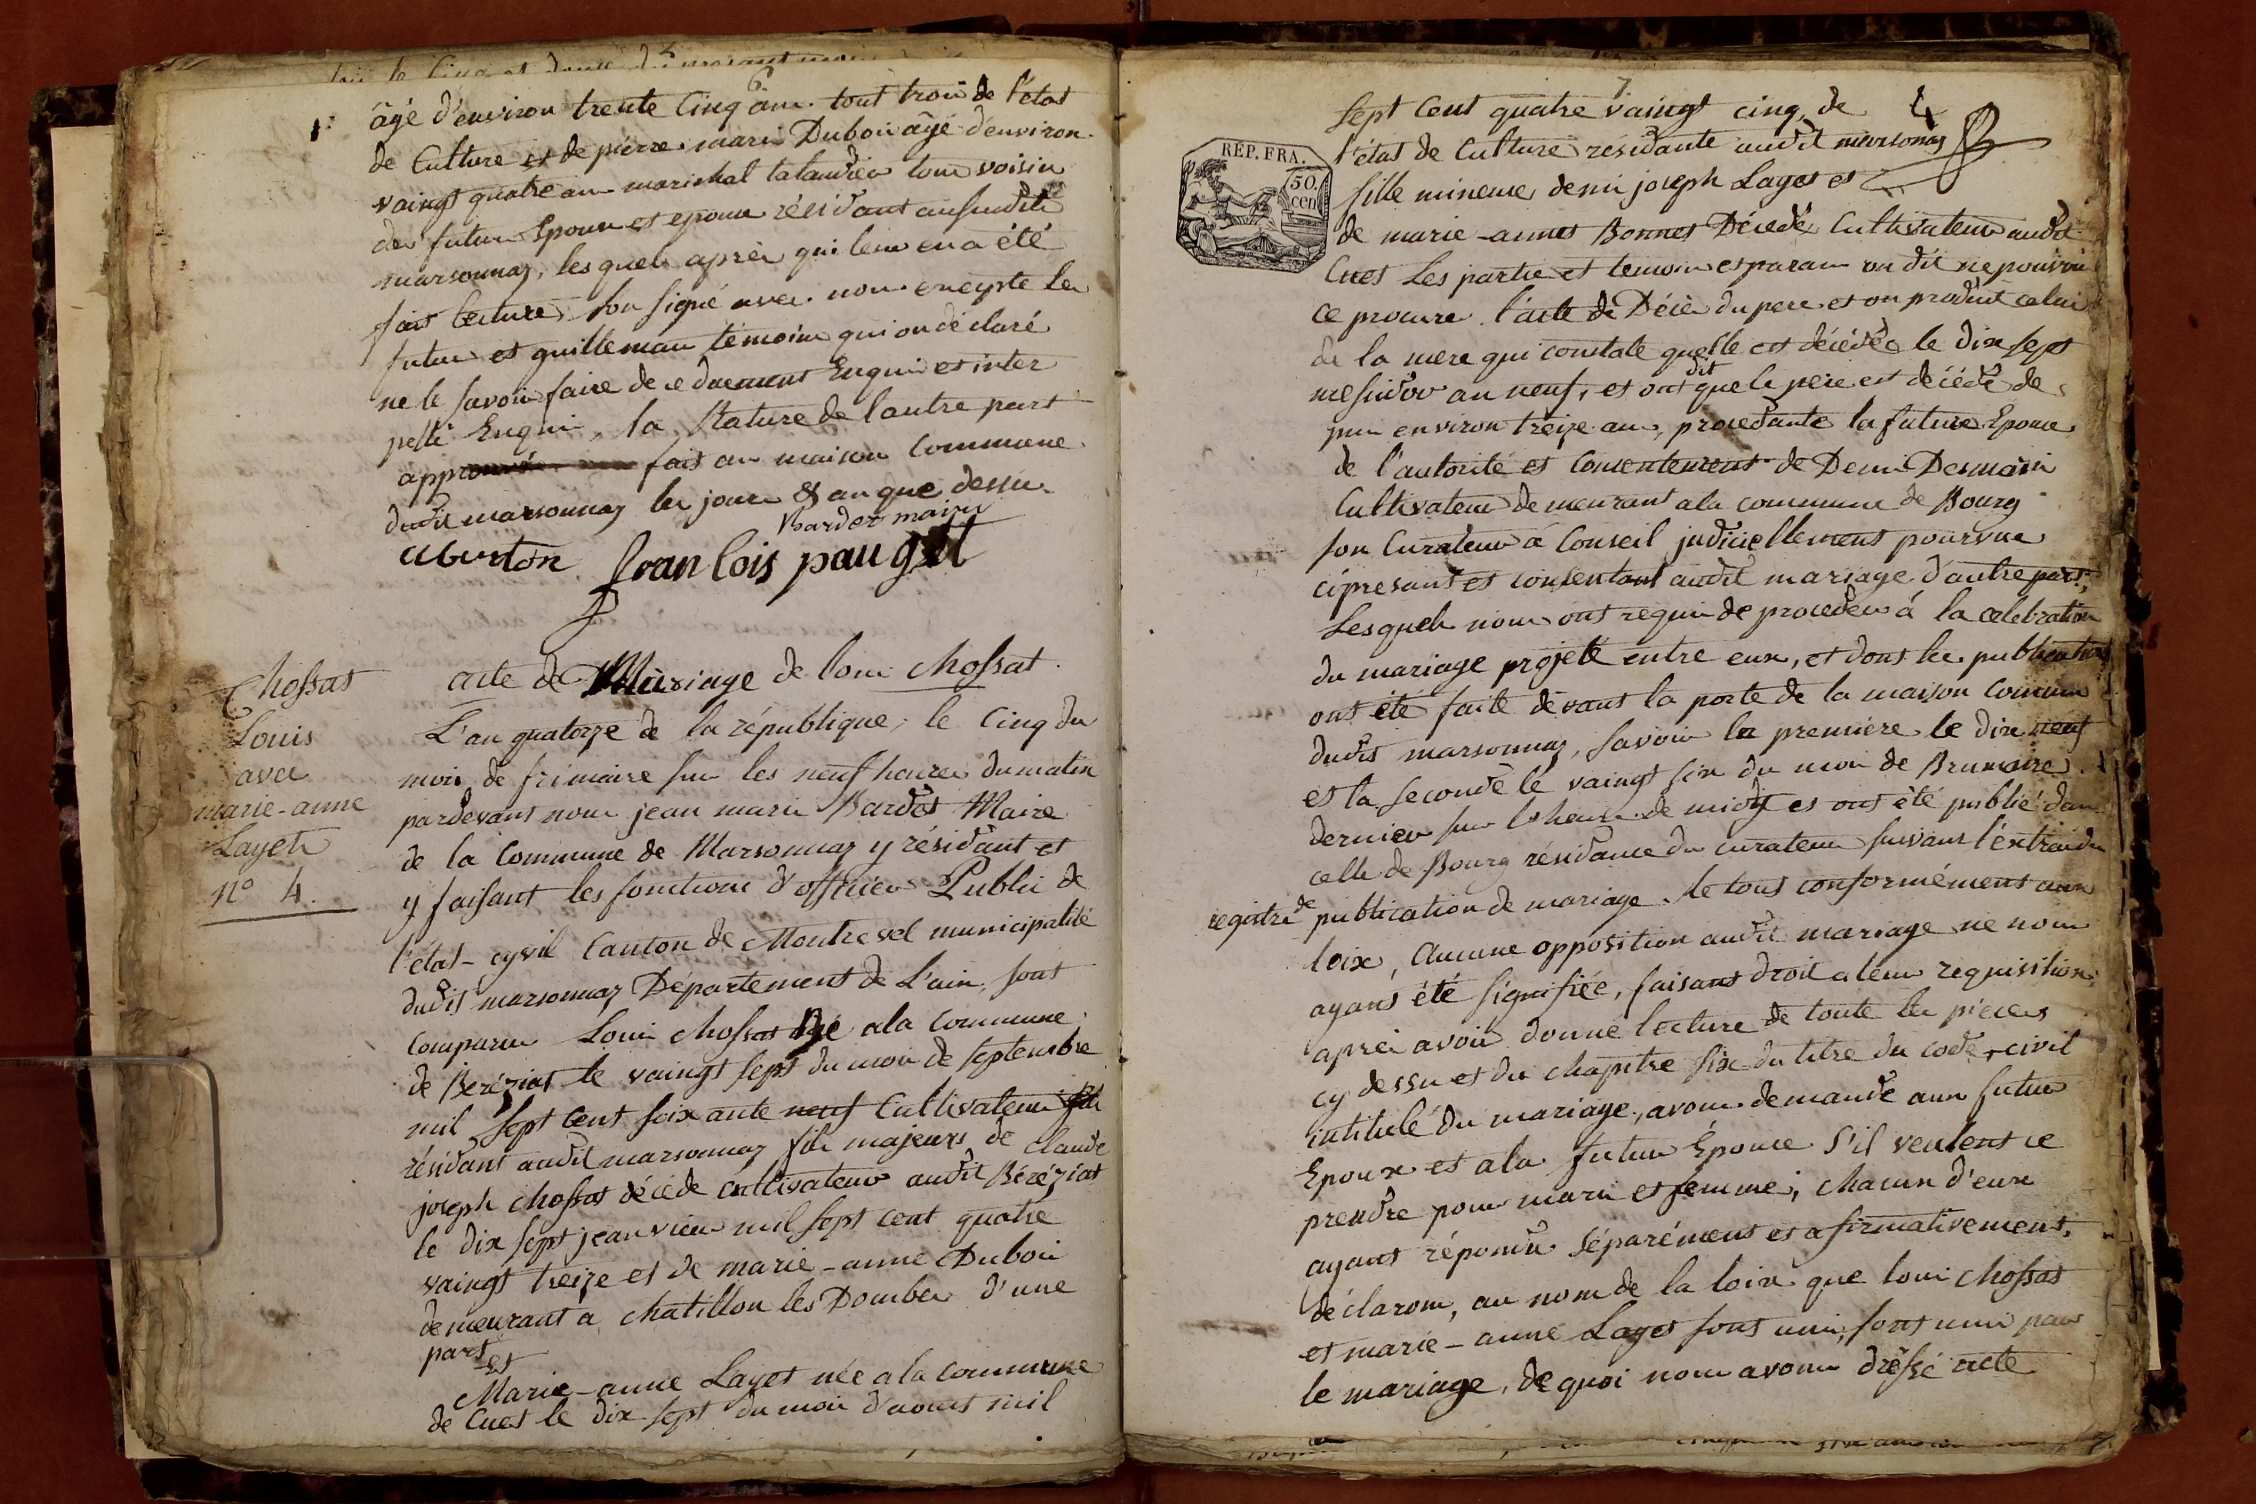 6.
âgé d'environ trente Cinq ans. tout trois de l'état
de Culture et de pierre. marie Dubois âgé d'environ.
vaingt quatre ans marichal talandier tous voisin
des futurs Epoux et epouse résidant aususdit
marsonnaz, lesquels après qui leur en a été
fait lecture, son signé avec nous excepté les
futurs et guilleman témoins qui on déclaré
ne le savoir faire de ce duement Enquis et inter
pellé Enquis, la Rature de l'autre part
approuvée fait en maison Commune
dudit marsonnaz les jours & an que dessus
Bardet maire
aberton franCois pauget
acte de Mariage de louis Chossat.
Chossat
Louis
avec
marie-anne
Layet
N° 4.
L'an quatorze de la république, le Cinq du
mois de frimaire sur les neuf heures du matin
pardevant nous jean marie Bardet Maire
de la Commune de Marsonnaz y résidant et
y faisant les fonctions d'officier Public de
l'état-cyvil Canton de Montrevel municipalité
dudit marsonnaz Département de L'ain, sont
comparus Louis Chossat Né a la Commune
de Beréziat le vaingt sept du mois de septembre
mil sept Cent soixante neuf Cultivateur
résidant audit marsonnaz fils majeurs de Claude
joseph Chossat décédé cultivateur audit Béréziat
le dix sept jeanvier mil sept cent quatre
vaingt treize et de marie-anne Dubois
demeurant a Chatillon les Dombes d'une
part
et
Marie-anne Layet née a la Commune
de Cuet le dix sept du mois d'aoust mil
7.
sept Cent quatre vaingt cinq, de
l'état de Culture résidante audit marsonnaz
REP. FRA.
50.
cen
fille mineure demi joseph Layet et
de marie-annes Bonnet Décédé Cultivateur audit
Cuet Les partie et temoin et parans on dit ne pouvoir
ce procure l'acte de Décès du pere et on produit celui
de la mere qui constate quelle est décédée le dix sept
mesidor an neuf, et ont dit que le père est décédé de
puis environ treize ans, procedante la future Epouse
de l'autorité et Consentement de Denis Desmaris
Cultivateur demeurant a la commune de Bourg
son Curateur à Conseil judiciellement pourvue
ci présant et consentant audit mariage d'autre part,
Lesquels nous ont requis de proceder à la celebration
du mariage projetté entre eux, et dont les publications
ont été faite devant la porte de la maison Commune
dudit marsonnaz, savoir la première le dix neuf
et la seconde le vaingt six du mois de Brumaire
dernier sur l'heure de midy et ont été publié dans
celle de Bourg résidance du curateur suivant l'extrai du
registre de publication de mariage. le tout conformément aux
loix, Aucune opposition audit mariage ne nous
ayant été signifiée, faisant droit a leur requisition,
après avoir donné lecture de toute les pieces
cy dessu et du chapitre six du titre du code civil
intitulé du mariage, avons demandé aux futur
Epoux et a la futur Epouse s'il veulent ce
prendre pour mari et femme; Chacun d'eux
ayant répondu séparément et afirmativement,
déclarons, au nom de la loix que louis Chossat
et marie-anne Layet sont unis, sont unis par
le mariage, de quoi nous avons dressé acte